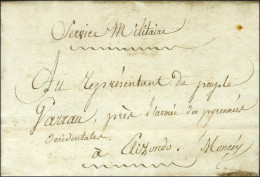 Service Militaire
Au Représentant du peuple
Garrau, près l'armée des pyrennées
occidentales
à Elizondo. Moncey